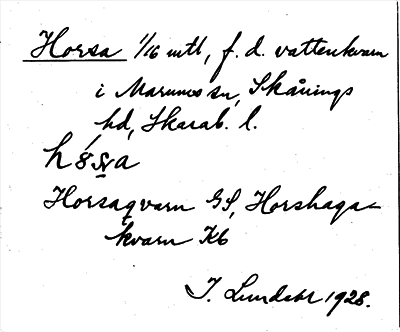 Horsa 1/16 mtl, f. d. vattenkvarn
i Marums sn, Skånings
hd, Skarab. l.
Horsaqvarn GS, Horshaga-
kvarn Kb
I. Lundahl 1928.